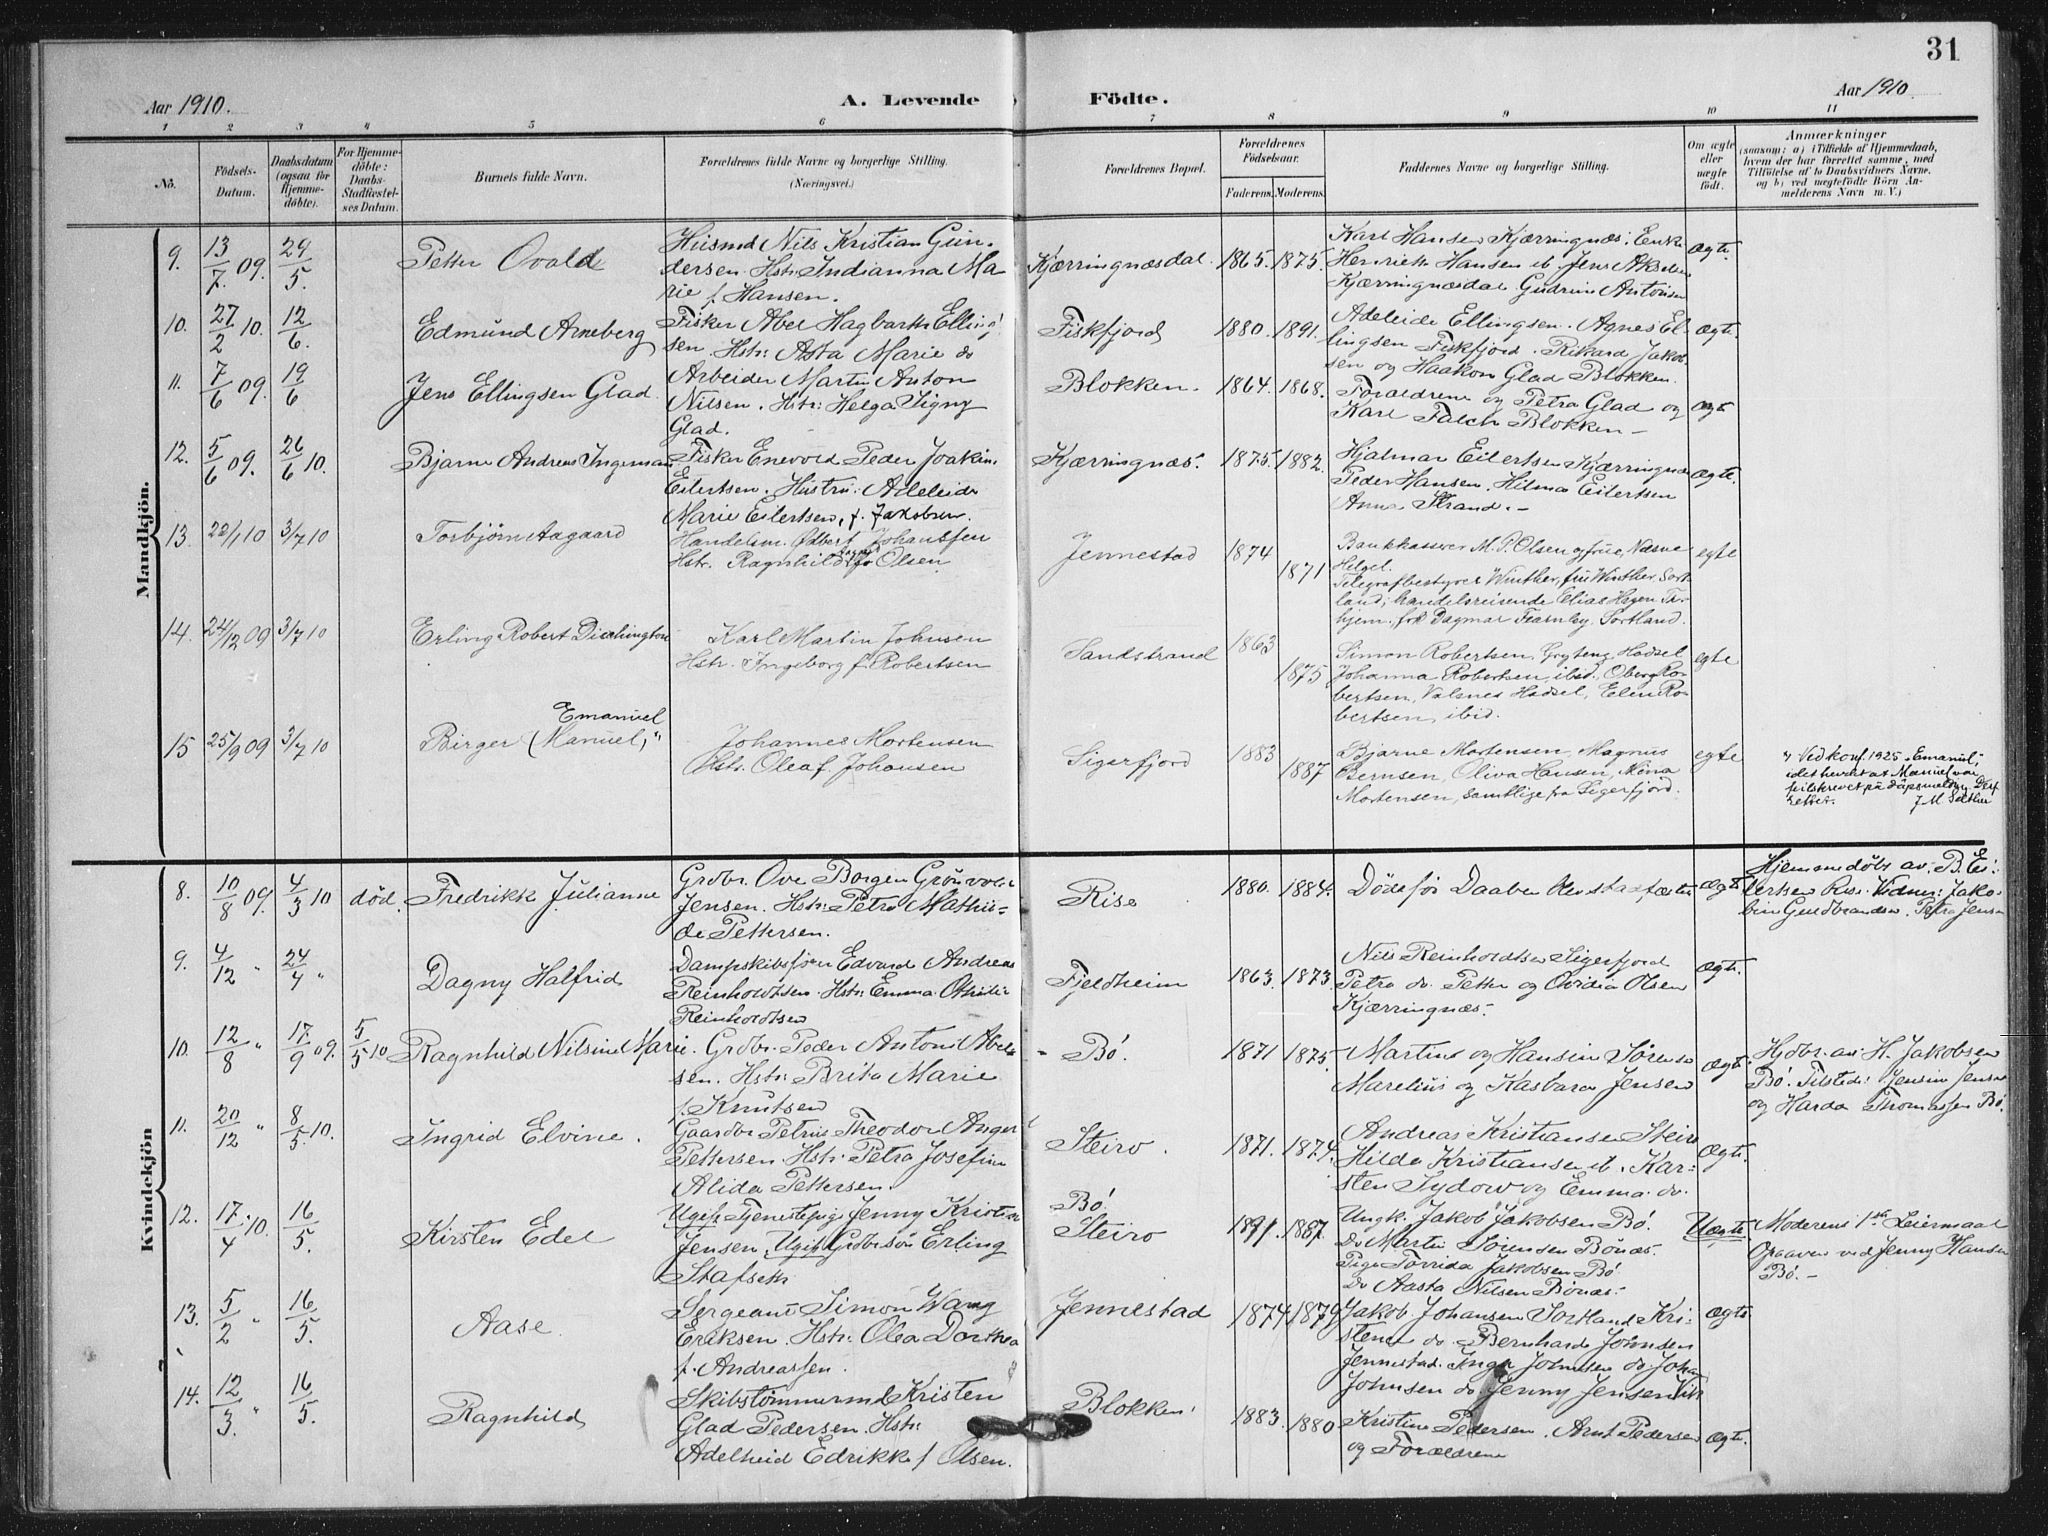 31
Aar 1910.
A. Levende Födte.
Aar 1910.
1 2 3 4 5 6 7 8 9 10 11
No.
Födsels-
Datum.
Daabsdatum
(ogsaa for
Hjemme-
döbte).
For Hjemme-
döbte:
Daabs-
Stadfæstel-
ses Datum.
Barnets fulde Navn.
Forældrenes fulde Navne og borgerlige Stilling.
(Næringsvei.)
Forældrenes Bopæl.
Forældrenes
Födselsaar.
Faderens. Moderens.
Faddernes Navne og borgerlige Stilling.
Om ægte
eller
uægte
født.
Anmærkninger
(saasom: a) i Tilfælde af Hjemmedaab,
hvem der har forrettet samme, med
Tilföielse af to Daabsvidners Navne,
og b) ved uægtefödte Börn An-
melderens Navn m. V.)
Mandkjön.
9. 13/7 09. 29/5 Petter Ovald
Husmd Nils Kristian Gun-
dersen. Hstr. Indianna Ma
rie f. Hansen.
Kjærringnæsdal. 1865. 1875.
Karl Hansen Kjærringnæs. Enke
Henrikke Hansen ib Jens Akselsen
Kjærringnæsdal Gudrun Antonsen
Ægte
10. 27/2 10. 12/6 Edmund Arneberg
Fisker Abel Hagbarth Elling
sen. Hstr: Asta Marie do
Fiskfjord 1880. 1891.
Adeleide Ellingsen. Agnes El-
lingsen Fiskfjord. Rikard Jakob
sen og Haakon Glad Blokken.
Ægte.
11. 7/6 09. 19/6 Jens Ellingsen Glad.
Arbeider Martin Anton
Nilsen. Hstr: Helga Signy
Glad.
Blokken. 1864. 1868.
Foraldrene og Petra Glad og
Karl Falch Blokken.
Ægte
12. 5/6 09. 26/6 10. Bjarne Andreas Ingeman
Fisker Enevold Peder Joakim
Eilertsen. Hustru: Adeleide
Marie Eilertsen, f. Jakobsen.
Kjærringnæs. 1875. 1882.
Hjalmar Eilertsen Kjærringnæs
Peder Hansen. Hilma Eilertsen
Anna Strand.
Ægte.
13. 22/1 10 3/7 10 Torbjørn Aagaard
Handelsm. Johanssen
Hstr. Ragnhild f. Olsen
Jennestad 1874 1871
Bankkasserer M. P. Olsen og frue, Næsne
Helgel.
Telegrafbestyrer Winther, fru Winther, Sort
land; handelsreisende Elias Hagen Tr.
hjem, frk Dagmar Fearnley, Sortland.
egte
14. 24/12 09 3/7 10 Erling Robert Dischington
Karl Martin Johnsen
Hstr. Ingeborg f. Robertsen
Sandstrand 1863 1875
Simon Robertsen, Gryteng, Hadsel
Johanna Robertsen, ibid., Oberg Ro-
bertsen, Valsnes Hadsel, Elen Ro-
bertsen, ibid.
egte
15 25/9 09 3/7 10 Birger (Manuel) Emanuel
Johannes Mortensen
Hstr. Olea f. Johansen
Sigerfjord 1883 1887
Bjarne Mortensen, Magnus
Berntsen, Oliva Hansen, Nina
Mortensen, samtlige fra Sigerfjord.
egte
Ved konf. 1925 "Emanuel",
idet hevdet at Manuel var
feilskrevet på dåpsmelding. Derf
rettet. J M Sæther
Kvindekjön
8. 10/8 09. 4/3 10 død. Fredrikk Julianne
Grdbr. Ove Borgen Grönvold
Jensen. Hstr: Petra Mathil-
de Pettersen.
Rise 1880. 1884.
Døde før Daaben blev stadfæstet
Ægte
Hjemmedøbt av: B. Ei-
lertsen Rise. Vidner: Jako-
bine Gundbrandsen. Petra Jensen
9. 4/12 " 24/4 " Dagny Halfrid
Dampskibsfører Edvard Andreas
Reinholdtsen. Hstr: Emma Othilie
Reinholdtsen
Fjeldheim 1863. 1873.
Nils Reinholdtsen Sigerfjord
Petra do. Petter og Ovidia Olsen
Kjærringnæs.
Ægte.
10. 12/8 " 17/9 09. 5/5 10 Ragnhild Nilsine Marie.
Grdbr. Peder Antoni Abel
sen. Hstr: Brita Marie
f. Knutsen
Bö. 1871 1875.
Martine og Hansine Sørense
Marelius og Kasbara Jensen
Ægte
Hjdbr. av H. Jakobsen
Bö. Tilstede: Jensine Jensen
og Harda Thomassen Bö.
11. 20/12 " 8/5 10. Ingrid Elvine.
Gaardbr Petrus Theodor Angel
Pettersen. Hstr: Petra Josefine
Alida Pettersen.
Steiro. 1871. 1874.
Andreas Kristiansen Steiro
Hilda Kristiansen ib. Kar-
sten Sydow og Emma do.
Ægte.
12. 17/4 10. 16/5. Kirsten Edel
Ugift Tjenestepige Jenny Kristine
Jensen. Ugift Grdbr.søn Erling
Stafseth
Bö
Steiro 1891. 1887.
Ungk. Jakob Jakobsen Bö.
Do Martin Sørensen Bönæs.
Pige Torrida Jakobsen Bö
Do Aasta Nilsen Bönæs.
Uægte
Moderens 1ste Leiermaal
Opgaven ved Jenny Hansen
Bö.
13. 5/2 " 16/5. Aase
Sergeant Simon Wang
Eriksen. Hstr: Olea Dorthea
f. Andreassen.
Jennestad 1874 1879
Jakob Johansen Sortland Kri-
stene do. Bernhard Johnsen
Jennestad. Inga Johnsen do Johan
Johnsen do. Jenny Jensen Vik
Ægte
14. 12/3. " 16/5. Ragnhild
Skibstømmermd Kristen
Glad Pedersen. Hstr:
Adelheid Edrikke f Olsen.
Blokken 1883. 1880
Kristine Pedersen. Arnt Pedersen
og Foraldrene
Ægte.